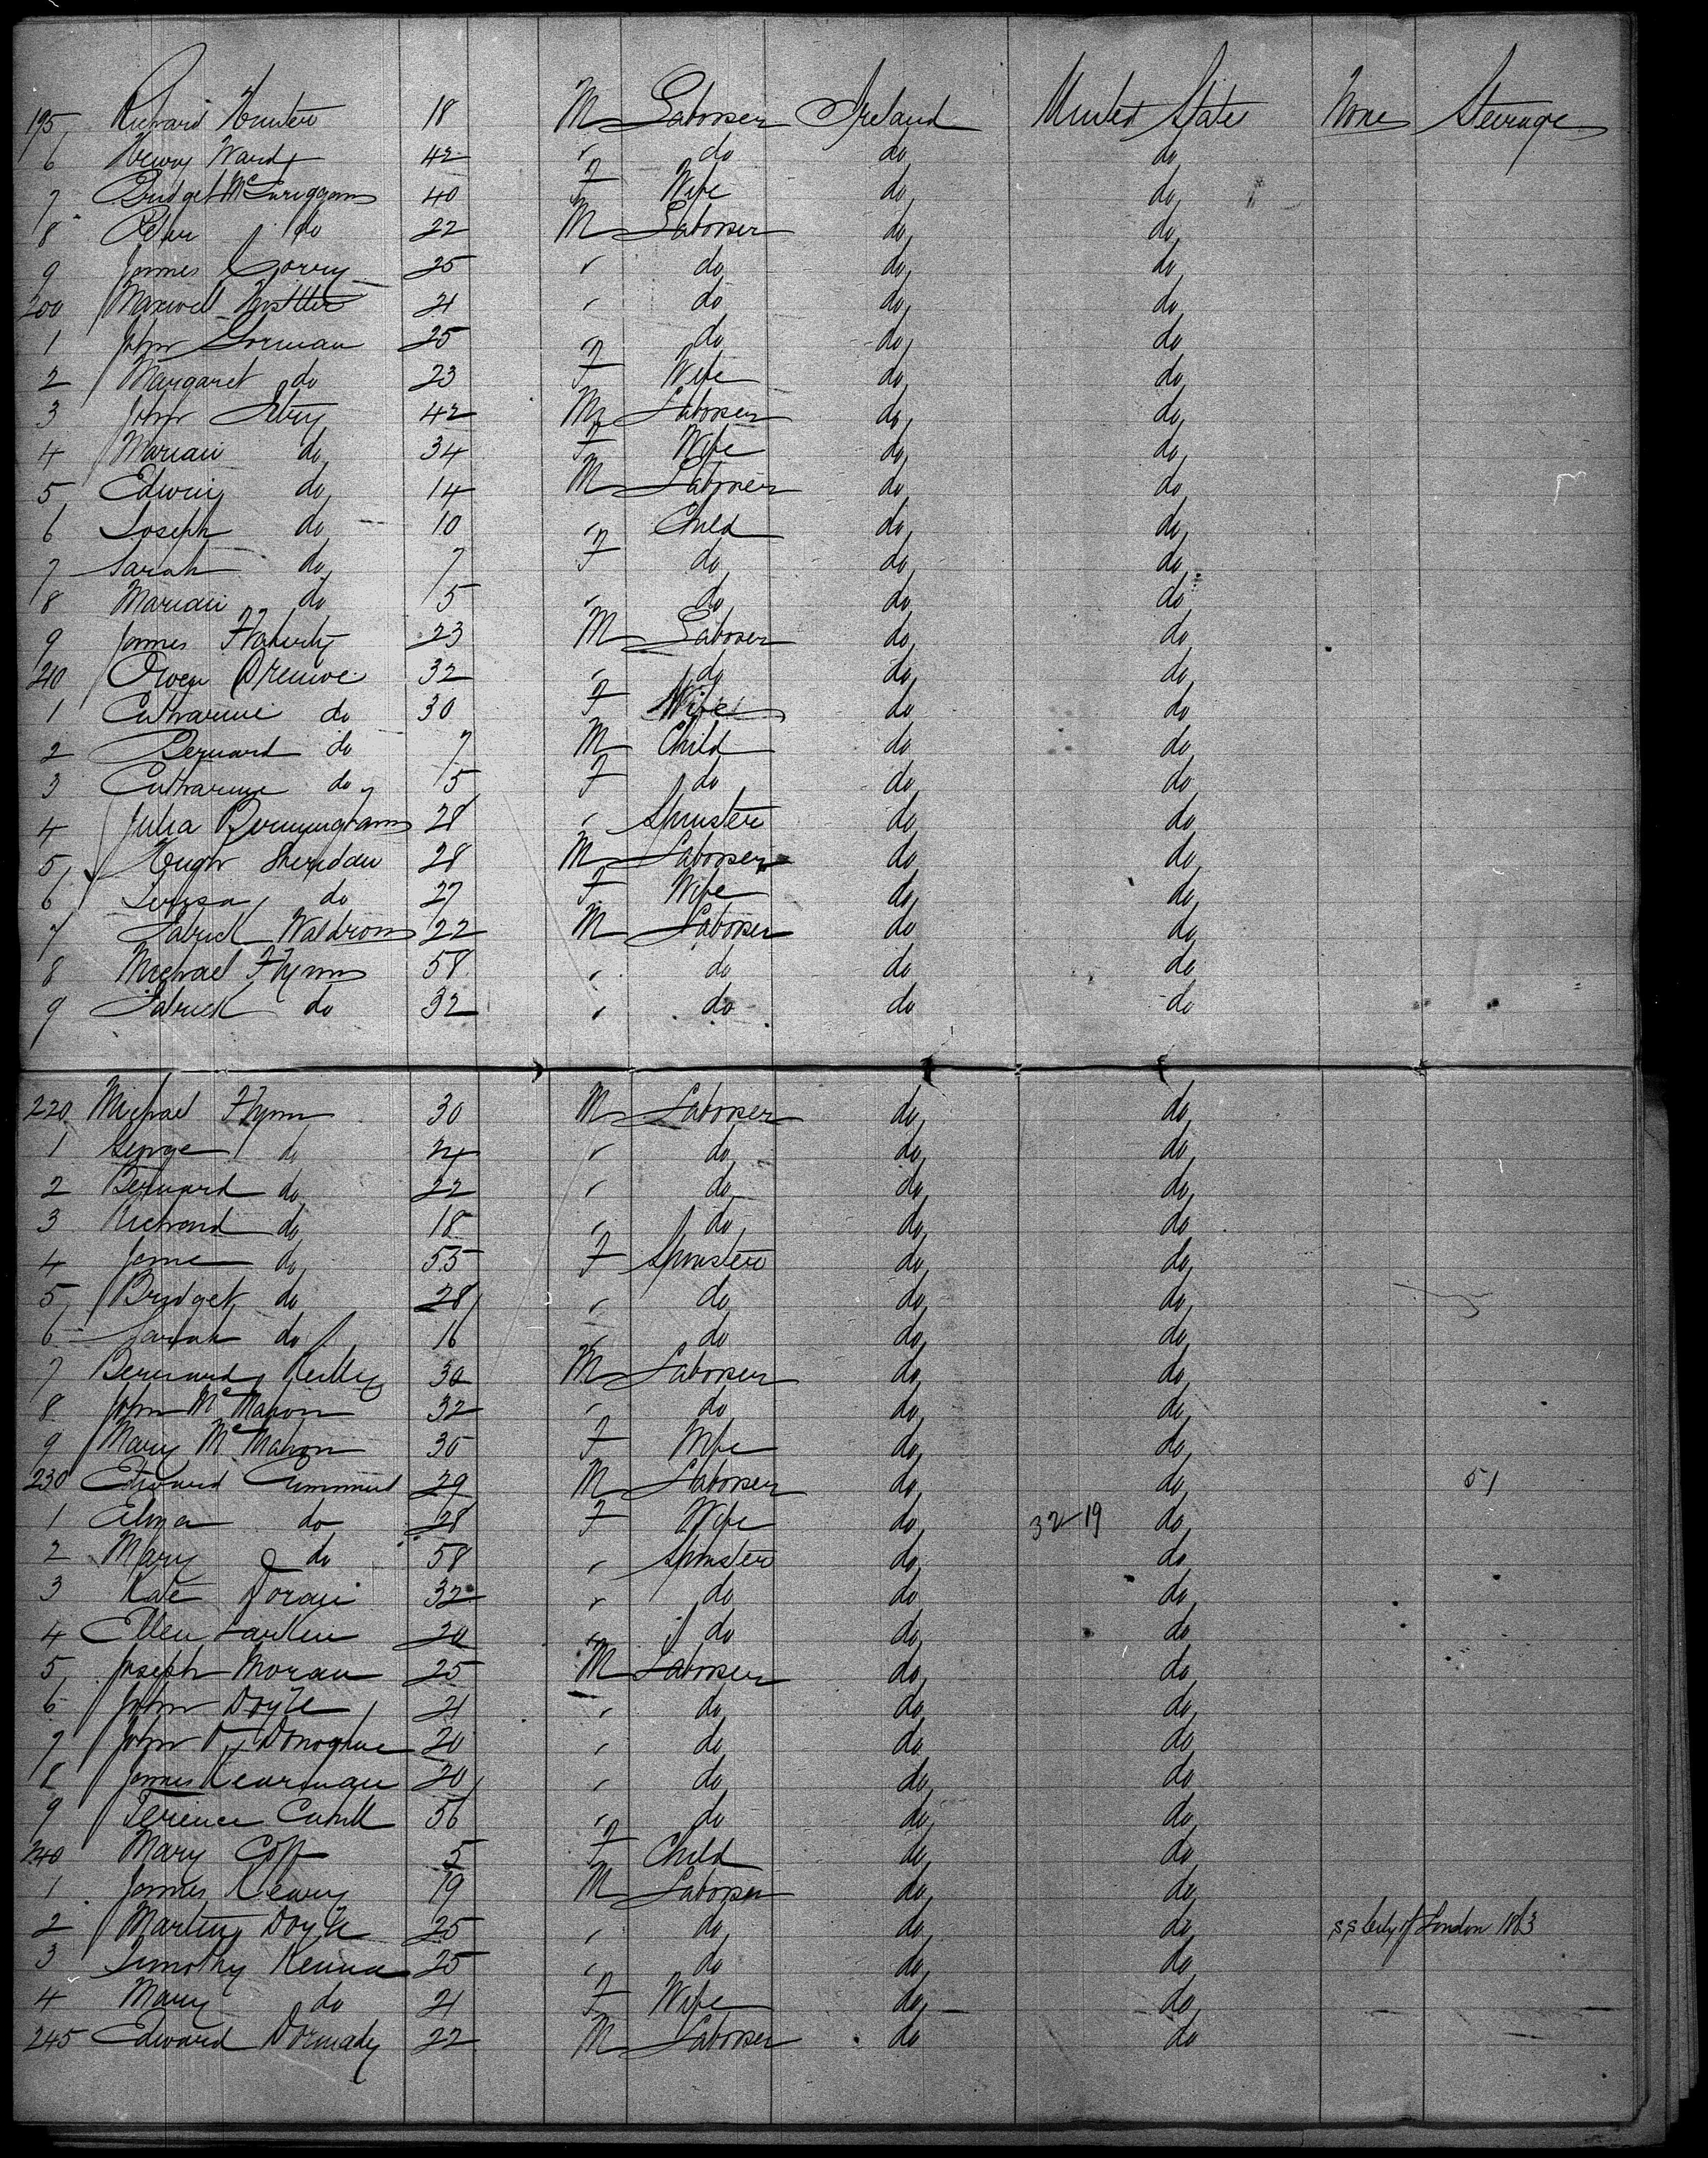 195 Richard Hunter 18 M Laborer Ireland United State None Steerage
6 Henry Ward 42 " do do do
7 Bridget 40 F Wife do do
8 Peter do 22 M Laborer do do
9 James Corry 25 " do do do
200 Maxwell 21 " do do do
1 John Gorman 25 " do do do
2 Margaret do 23 F Wife do do
3 John 42 M Laborer do do
4 Marian do 34 F Wife do do
5 Edwin do 14 M Laborer do do
6 Joseph do 10 " Child do do
7 Sarah do 7 F do do do
8 Marian do 5 " do do do
9 James Flaherty 23 M Laborer do do
210 Owen 32 " do do do
1 Catharine do 30 F Wife do do
2 Bernard do 7 M Child do do
3 Catharine do 5 F do do do
4 Julia Bermingham 28 " Spinster do do
5 Hugh Sheridan 28 M Laborer do do
6 do 27 F Wife do do
7 Patrick Waldron 22 M Laborer do do
8 Michael Flynn 58 " do do do
9 Patrick do 32 " do do do
220 Michael Flynn 30 M Laborer do do
1 George do 24 " do do do
2 Bernard do 22 " do do do
3 Richard do 18 " do do do
4 Jane do 55 F Spinster do do
5 Bridget do 28 " do do do
6 Sarah do 16 " do do do
7 Bernard Reilly 30 M Laborer do do
8 John McMahon 32 " do do do
9 Mary McMahon 30 F Wife do do
230 Edward 29 M Laborer do do 51
1 do 28 F Wife do 32-19 do
2 Mary do 58 " Spinster do do
3 Kate Doran 32 " do do do
4 Ellen Larken 20 " do do do
5 Joseph Moran 25 M Laborer do do
6 John Doyle 21 " do do do
7 John O'Donoghue 20 " do do do
8 James Kearnan 20 " do do do
9 Terence Cahill 56 " do do do
240 Mary 5 F Child do do
1 James 19 M Laborer do do
2 Martin Doyle 25 " do do do S,S City of London 1863
3 Timothy Kenna 25 " do do do
4 Mary do 21 F Wife do do
245 Edward Dormady 22 M Laborer do do